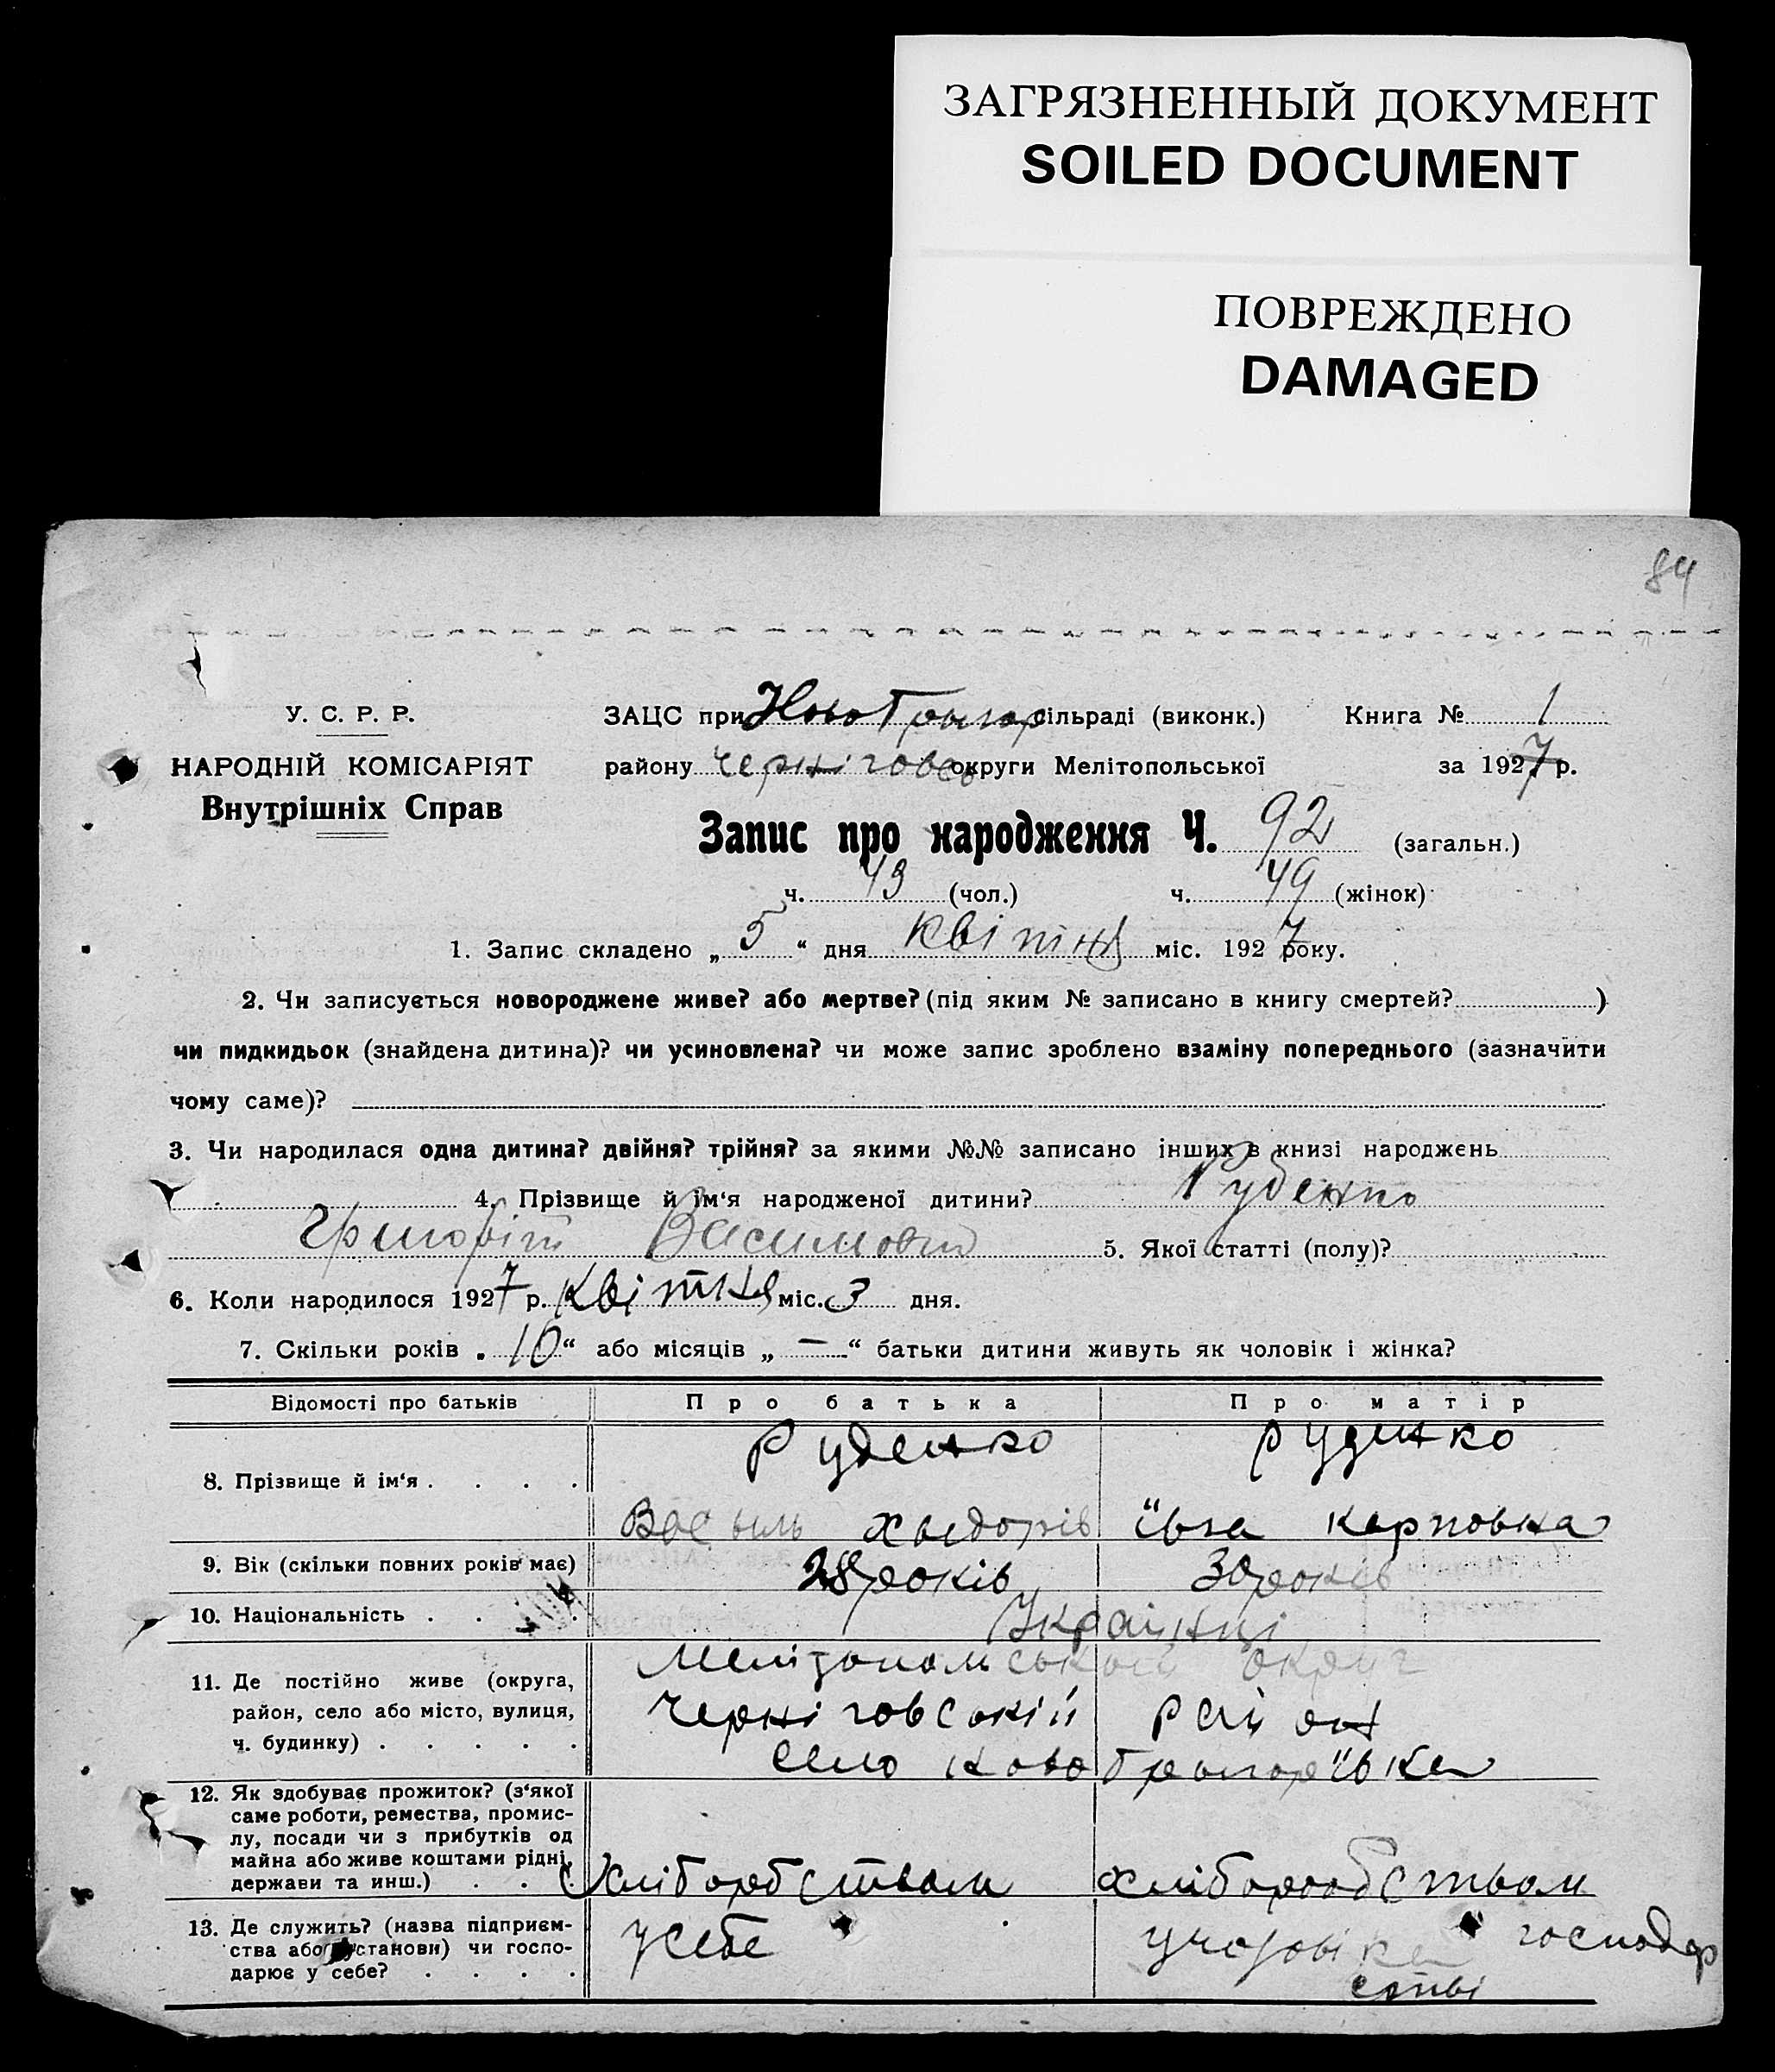 ЗАГРЯЗНЕННЫЙ ДОКУМЕНТ
SOILED DOCUMENT
ПОВРЕЖДЕНО
DAMAGED
84
У. С. Р. Р.
НАРОДНІЙ КОМІСАРІЯТ
Внутрішніх Справ
ЗАЦС при Ново Григор сільраді (виконк.) Книга № 1
району Черніговсь округи Мелітопольської за 1927 р.
Запис про народження Ч. 92 (загальн.)
ч. 43 (чол.) ч. 49 (жінок)
1. Запис складено „ 5 “ дня Квітня міс. 1927 року.
2. Чи записується новороджене живе? або мертве? (під яким № записано в книгу смертей? )
чи пидкидьок (знайдена дитина)? чи усиновлена? чи може запис зроблено взаміну попереднього (зазначити
чому саме)?
3. Чи народилася одна дитина? двійня? трійня? за якими №№ записано інших в книзі народжень
4. Прізвище й ім‘я народженої дитини? Руденко
5. Якої статті (полу)?
6. Коли народилося 1927 р. Квітня міс. 3 дня.
7. Скільки років „ 10 “ або місяців „ — “ батьки дитини живуть як чоловік і жінка?
Відомості про батьків Про батька Про матір
8. Прізвище й ім‘я . . . . Руденко Руденко
Васыль Хведорів Ївга Карповна
9. Вік (скільки повних років має) 28 років 30 років
10. Національність . . . . Українці
11. Де постійно живе (округа, район, село або місто, вулиця, ч. будинку) . . . . .
Мелітопольськой округ
Черніговській район
село Ново Григорївка
12. Як здобуває прожиток? (з‘якої
саме роботи, ремества, промис-
лу, посади чи з прибутків од
майна або живе коштами рідні,
держави та инш.) . . .
Хліборобством хліборообством
13. Де служить? (назва підприєм-
ства або установи) чи госпо-
дарює у себе? . . . .
у себе господар
стві